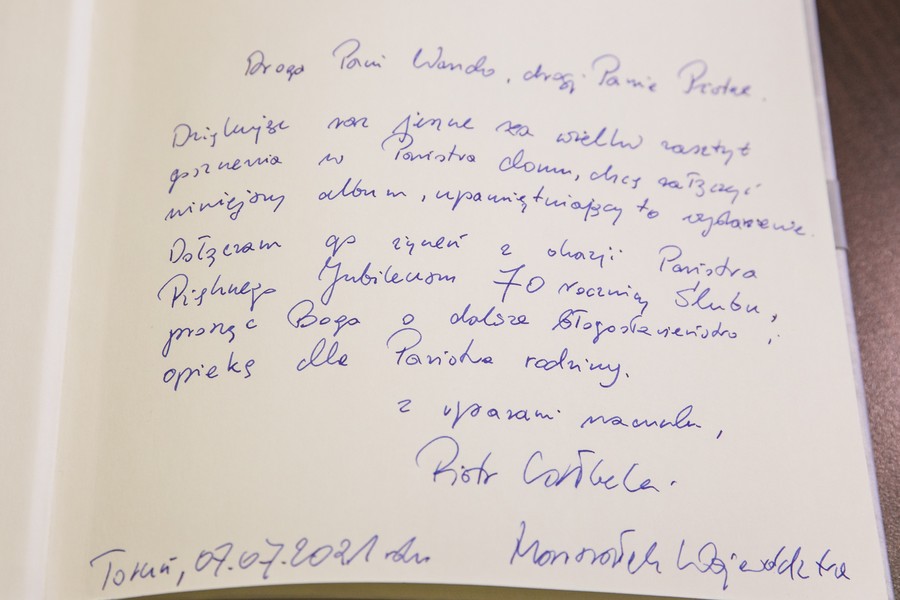 Droga Pani Wando, drogi Panie Piotrze.
Dziękując raz jeszcze za wielki zaszczyt
goszczenia w Państwa domu, chcę załączyć
niniejszy album, upamiętniający to wydarzenie.
Dołączam go życzeń z okazji Państwa
Pięknego Jubileuszu 70 rocznicy Ślubu,
prosząc Boga o dalsze błogosławieństwo i
opiekę dla Państwa rodziny.
z wyrazami szacunku,
Piotr Całbecki.
Toruń, 07.07.2021 roku
Marszałek Województwa